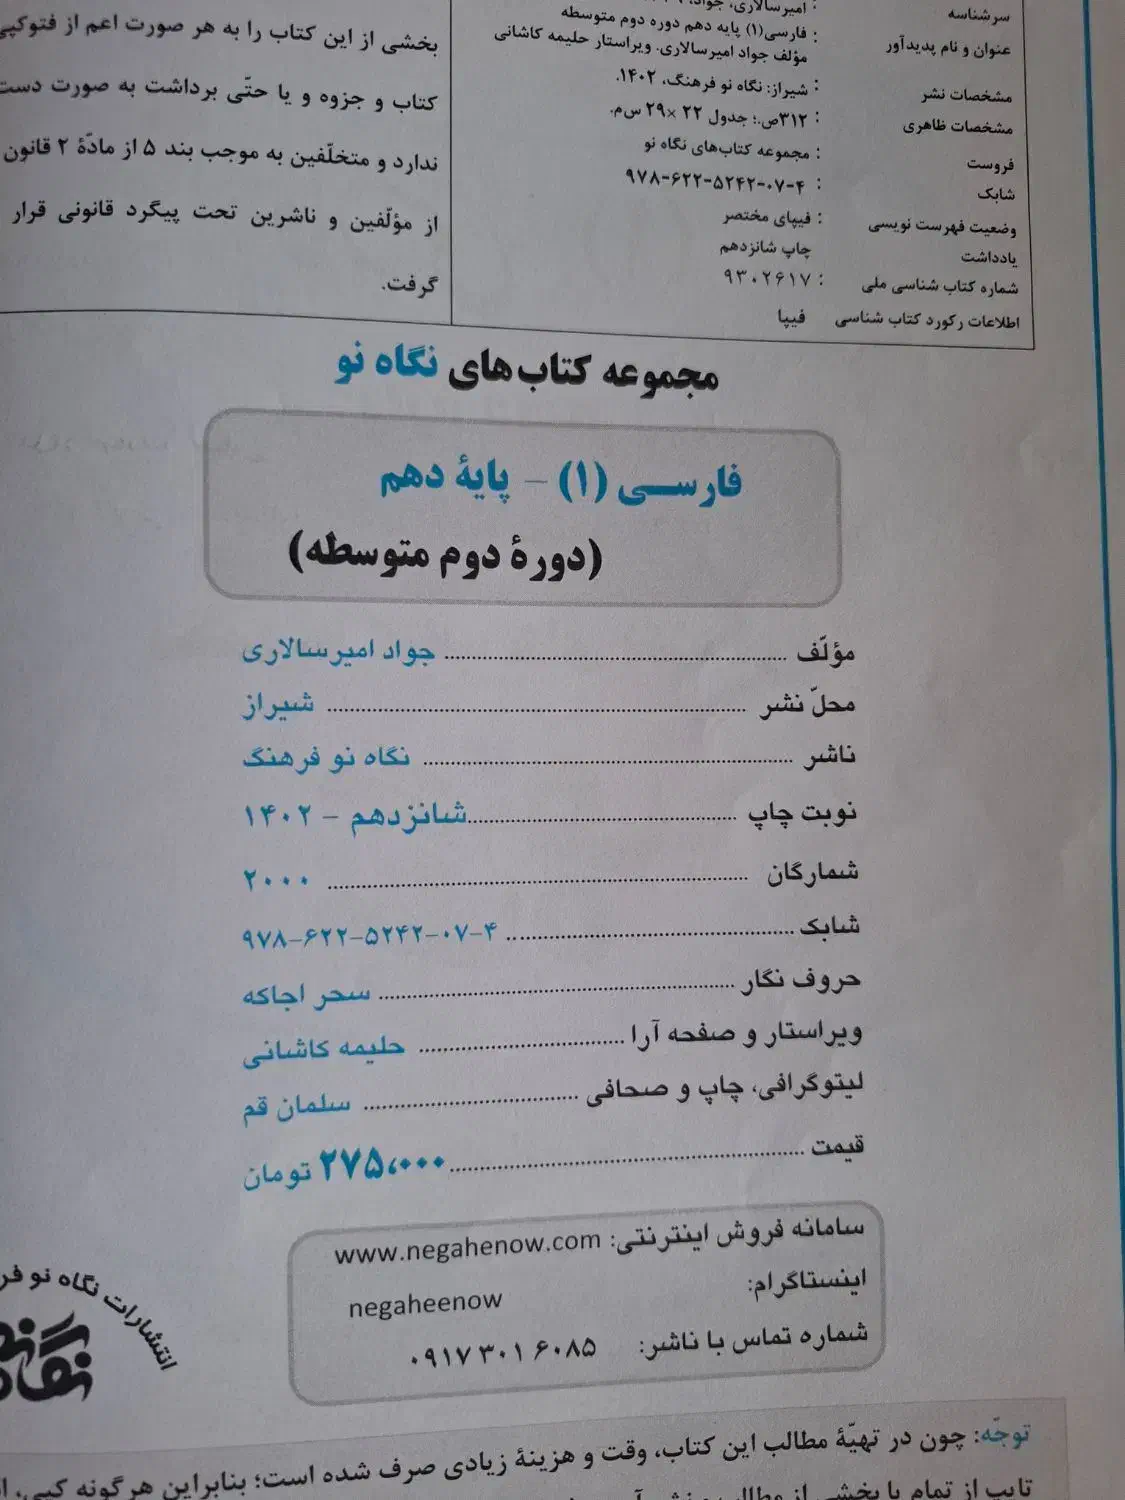 سرشناسه : امیرسالاری، جواد،
عنوان و نام پدیدآور : فارسی(۱) پایه دهم دوره دوم متوسطه
مؤلف جواد امیرسالاری. ویراستار حلیمه کاشانی
مشخصات نشر : شیراز: نگاه نو فرهنگ، ۱۴۰۲.
مشخصات ظاهری : ۳۱۲ص.؛ جدول ۲۲ ×۲۹ س‌م.
فروست : مجموعه کتاب‌های نگاه نو
شابک : ۹۷۸-۶۲۲-۵۲۴۲-۰۷-۴
وضعیت فهرست نویسی : فیپای مختصر
یادداشت چاپ شانزدهم
شماره کتاب شناسی ملی : ۹۳۰۲۶۱۷
اطلاعات رکورد کتاب شناسی فیپا
بخشی از این کتاب را به هر صورت اعم از فتوکپی
کتاب و جزوه و یا حتّی برداشت به صورت دست
ندارد و متخلّفین به موجب بند ۵ از مادّهٔ ۲ قانون
از مؤلّفین و ناشرین تحت پیگرد قانونی قرار
گرفت.
مجموعه کتاب‌های نگاه نو
فارسی (۱) – پایهٔ دهم
(دورهٔ دوم متوسطه)
مؤلّف جواد امیرسالاری
محلّ نشر شیراز
ناشر نگاه نو فرهنگ
نوبت چاپ شانزدهم – ۱۴۰۲
شمارگان ۲۰۰۰
شابک ۹۷۸-۶۲۲-۵۲۴۲-۰۷-۴
حروف نگار سحر اجاکه
ویراستار و صفحه آرا حلیمه کاشانی
لیتوگرافی، چاپ و صحافی سلمان قم
قیمت ۲۷۵،۰۰۰ تومان
سامانه فروش اینترنتی: www.negahenow.com
اینستاگرام: negaheenow
شماره تماس با ناشر: ۰۹۱۷ ۳۰۱ ۶۰۸۵
انتشارات نگاه نو
توجّه: چون در تهیّهٔ مطالب این کتاب، وقت و هزینهٔ زیادی صرف شده است؛ بنابراین هرگونه کپی،
تایپ از تمام یا بخشی از مطالب